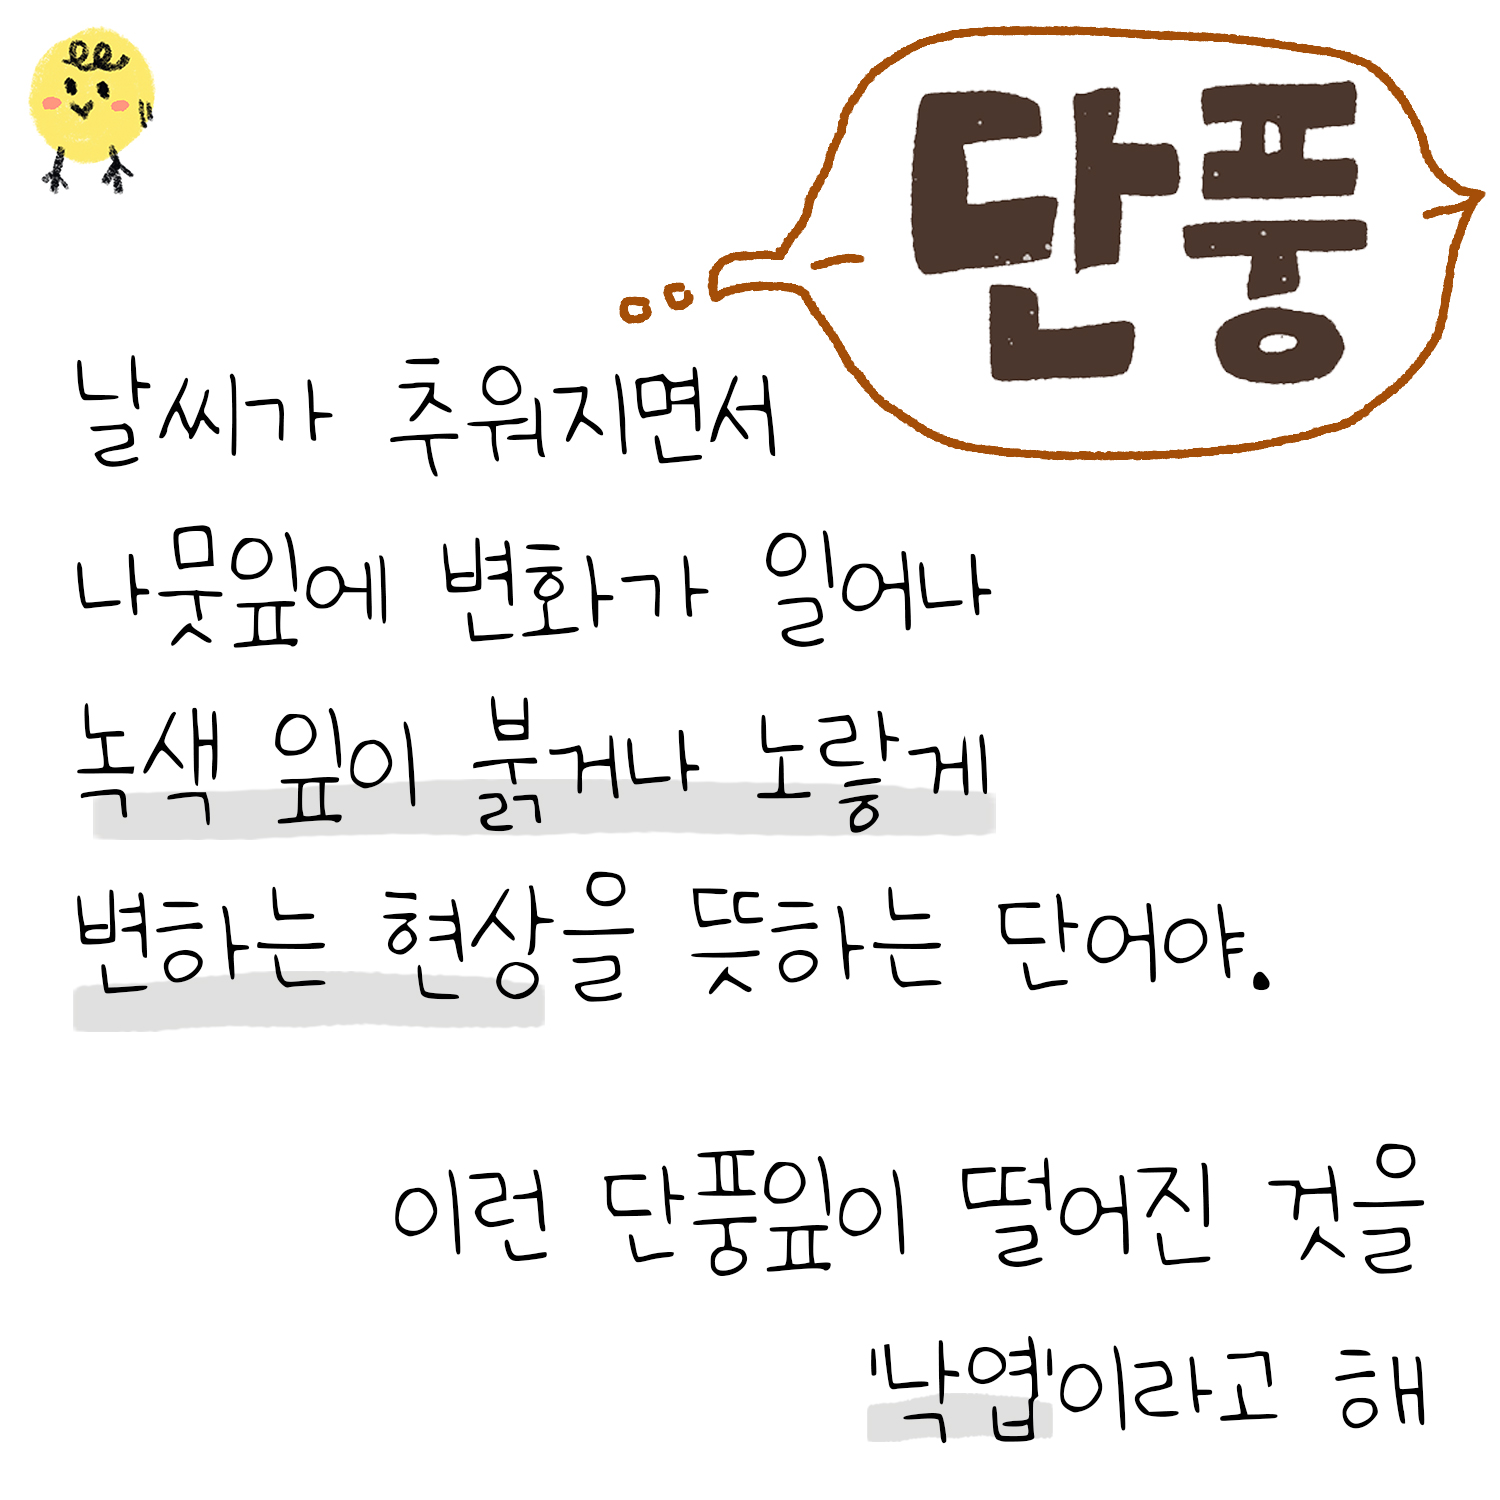 단풍
날씨가 추워지면서
나뭇잎에 변화가 일어나
녹색 잎이 붉거나 노랗게
변하는 현상을 뜻하는 단어야.
이런 단풍잎이 떨어진 것을
'낙엽'이라고 해